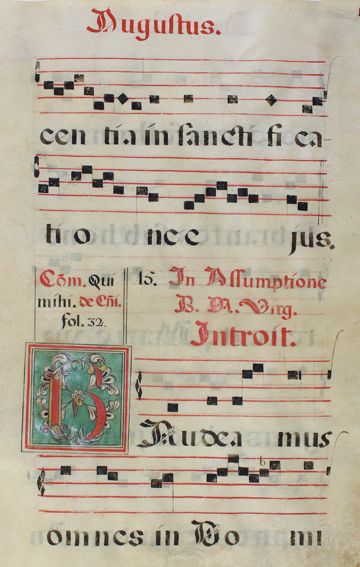 Augustus.
cen tia in sancti fi ca
ti o nee jus.
Cõm. Qui
mihi. de Cñi.
fol. 32.
15. In Assumptione
B. M. Virg.
Introit.
GAudea mus
omnes in Do mi